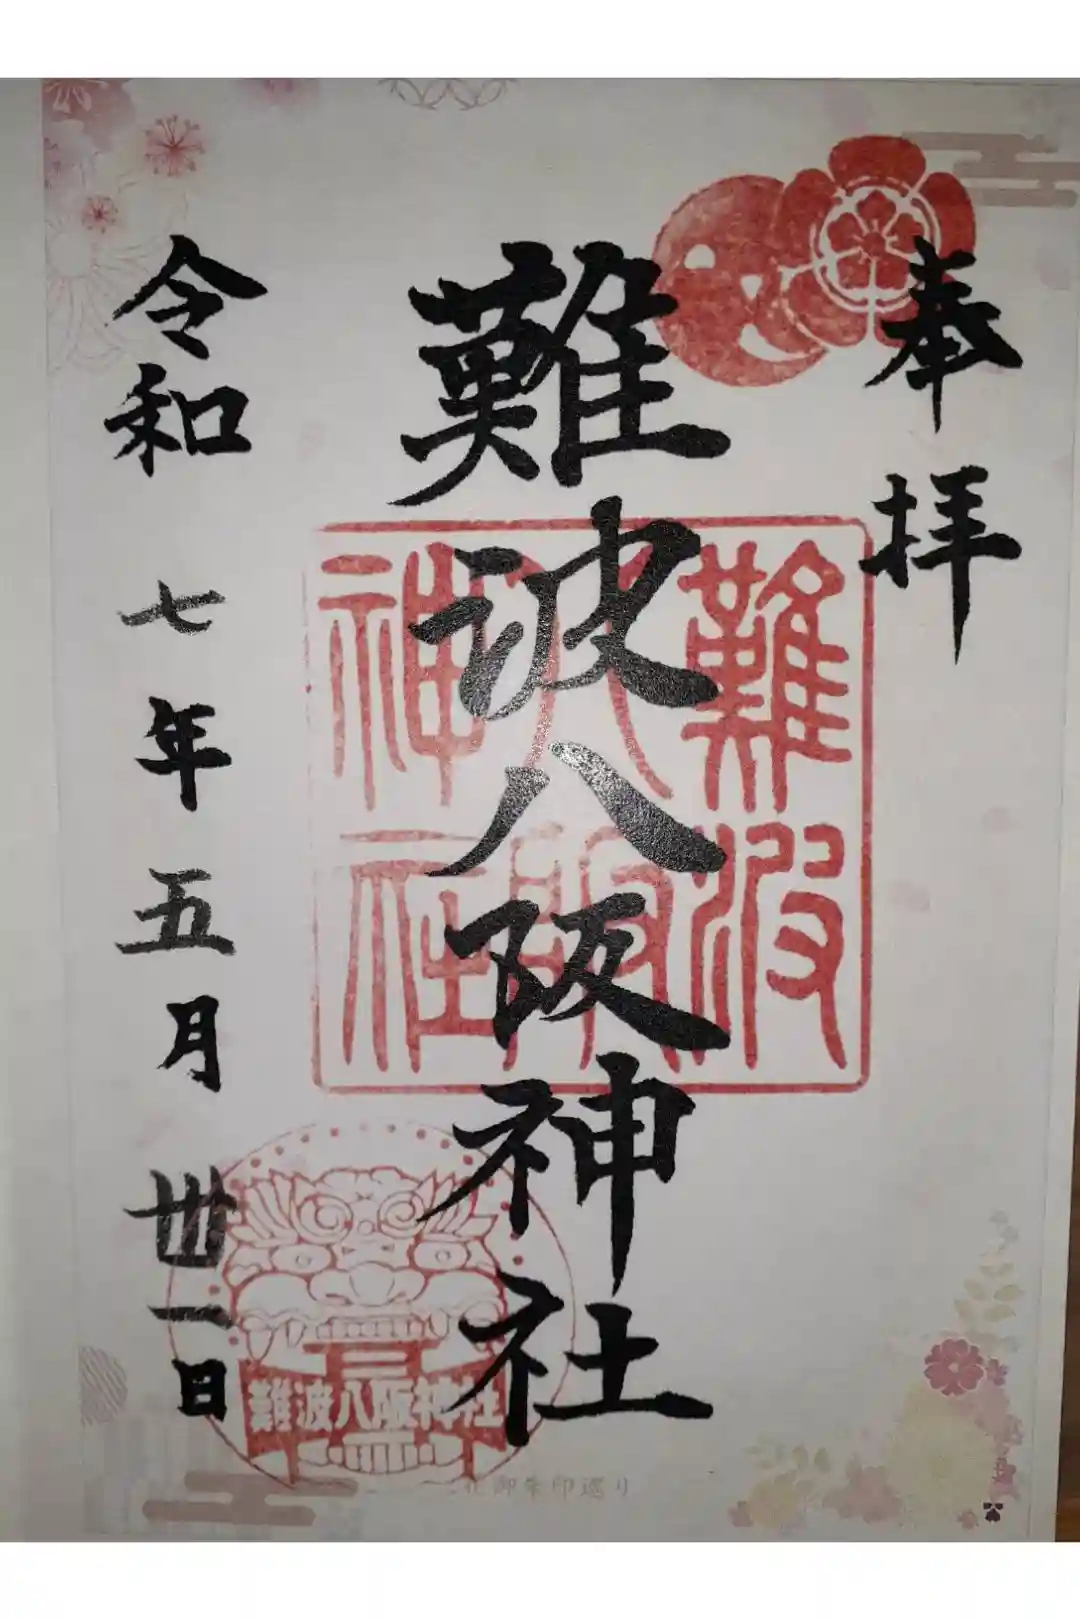 奉拝
難波八阪神社
難波八阪神社
令和七年五月卅一日
難波八阪神社
御朱印巡り